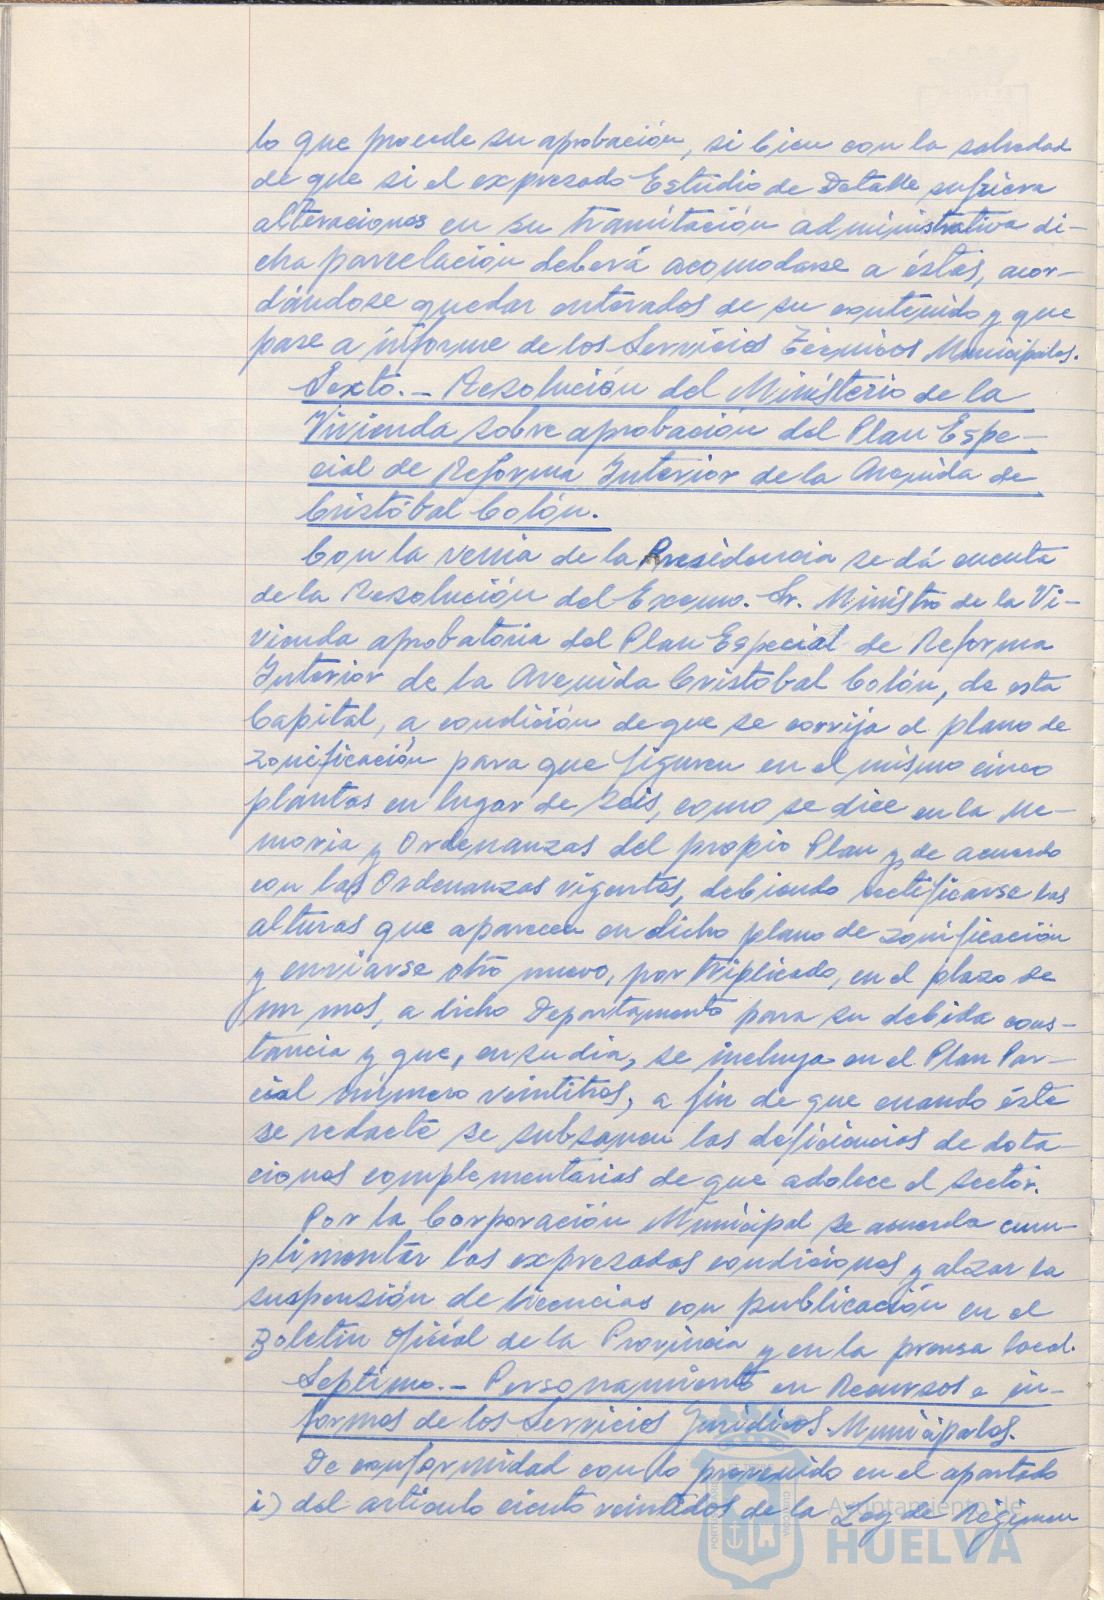 lo que procede su aprobación, si bien con la salvedad
de que si el expresado Estudio de Detalle sufriera
alteraciones en su tramitación administrativa di-
cha parcelación deberá acomodarse a éstas, acor-
dándose quedar enterados de su contenido y que
pase a informe de los Servicios Técnicos Municipales.
Sexto.- Resolución del Ministerio de la
Vivienda sobre aprobación del Plan Espe-
cial de Reforma Interior de la Avenida de
Cristóbal Colón.
Con la venia de la Presidencia se dá cuenta
de la Resolución del Excmo. Sr. Ministro de la Vi-
vienda aprobatoria del Plan Especial de Reforma
Interior de la Avenida Cristobal Colón, de esta
Capital, a condición de que se corrija el plano de
zonificación para que figuren en el mismo cinco
plantas en lugar de seis, como se dice en la Me-
moria y Ordenanzas del propio Plan y de acuerdo
con las Ordenanzas vigentes, debiendo rectificarse las
alturas que aparecen en dicho plano de zonificación
y enviarse otro nuevo, por triplicado, en el plazo de
un mes, a dicho Departamento para su debida cons-
tancia y que, en su dia, se incluya en el Plan Par-
cial número veintitres, a fin de que cuando éste
se redacte se subsanen las deficiencias de dota-
ciones complementarias de que adolece el sector.
Por la Corporación Municipal se acuerda cum-
plimentar las expresadas condiciones y alzar la
suspensión de licencias con publicación en el
Boletin Oficial de la Provincia y en la prensa local.
Septimo.- Personamiento en Recursos e in-
formes de los Servicios Jurídicos Municipales.
De conformidad con lo prevenido en el apartado
i) del artículo ciento veintidos de la Ley de Régimen
Ayuntamiento de
HUELVA